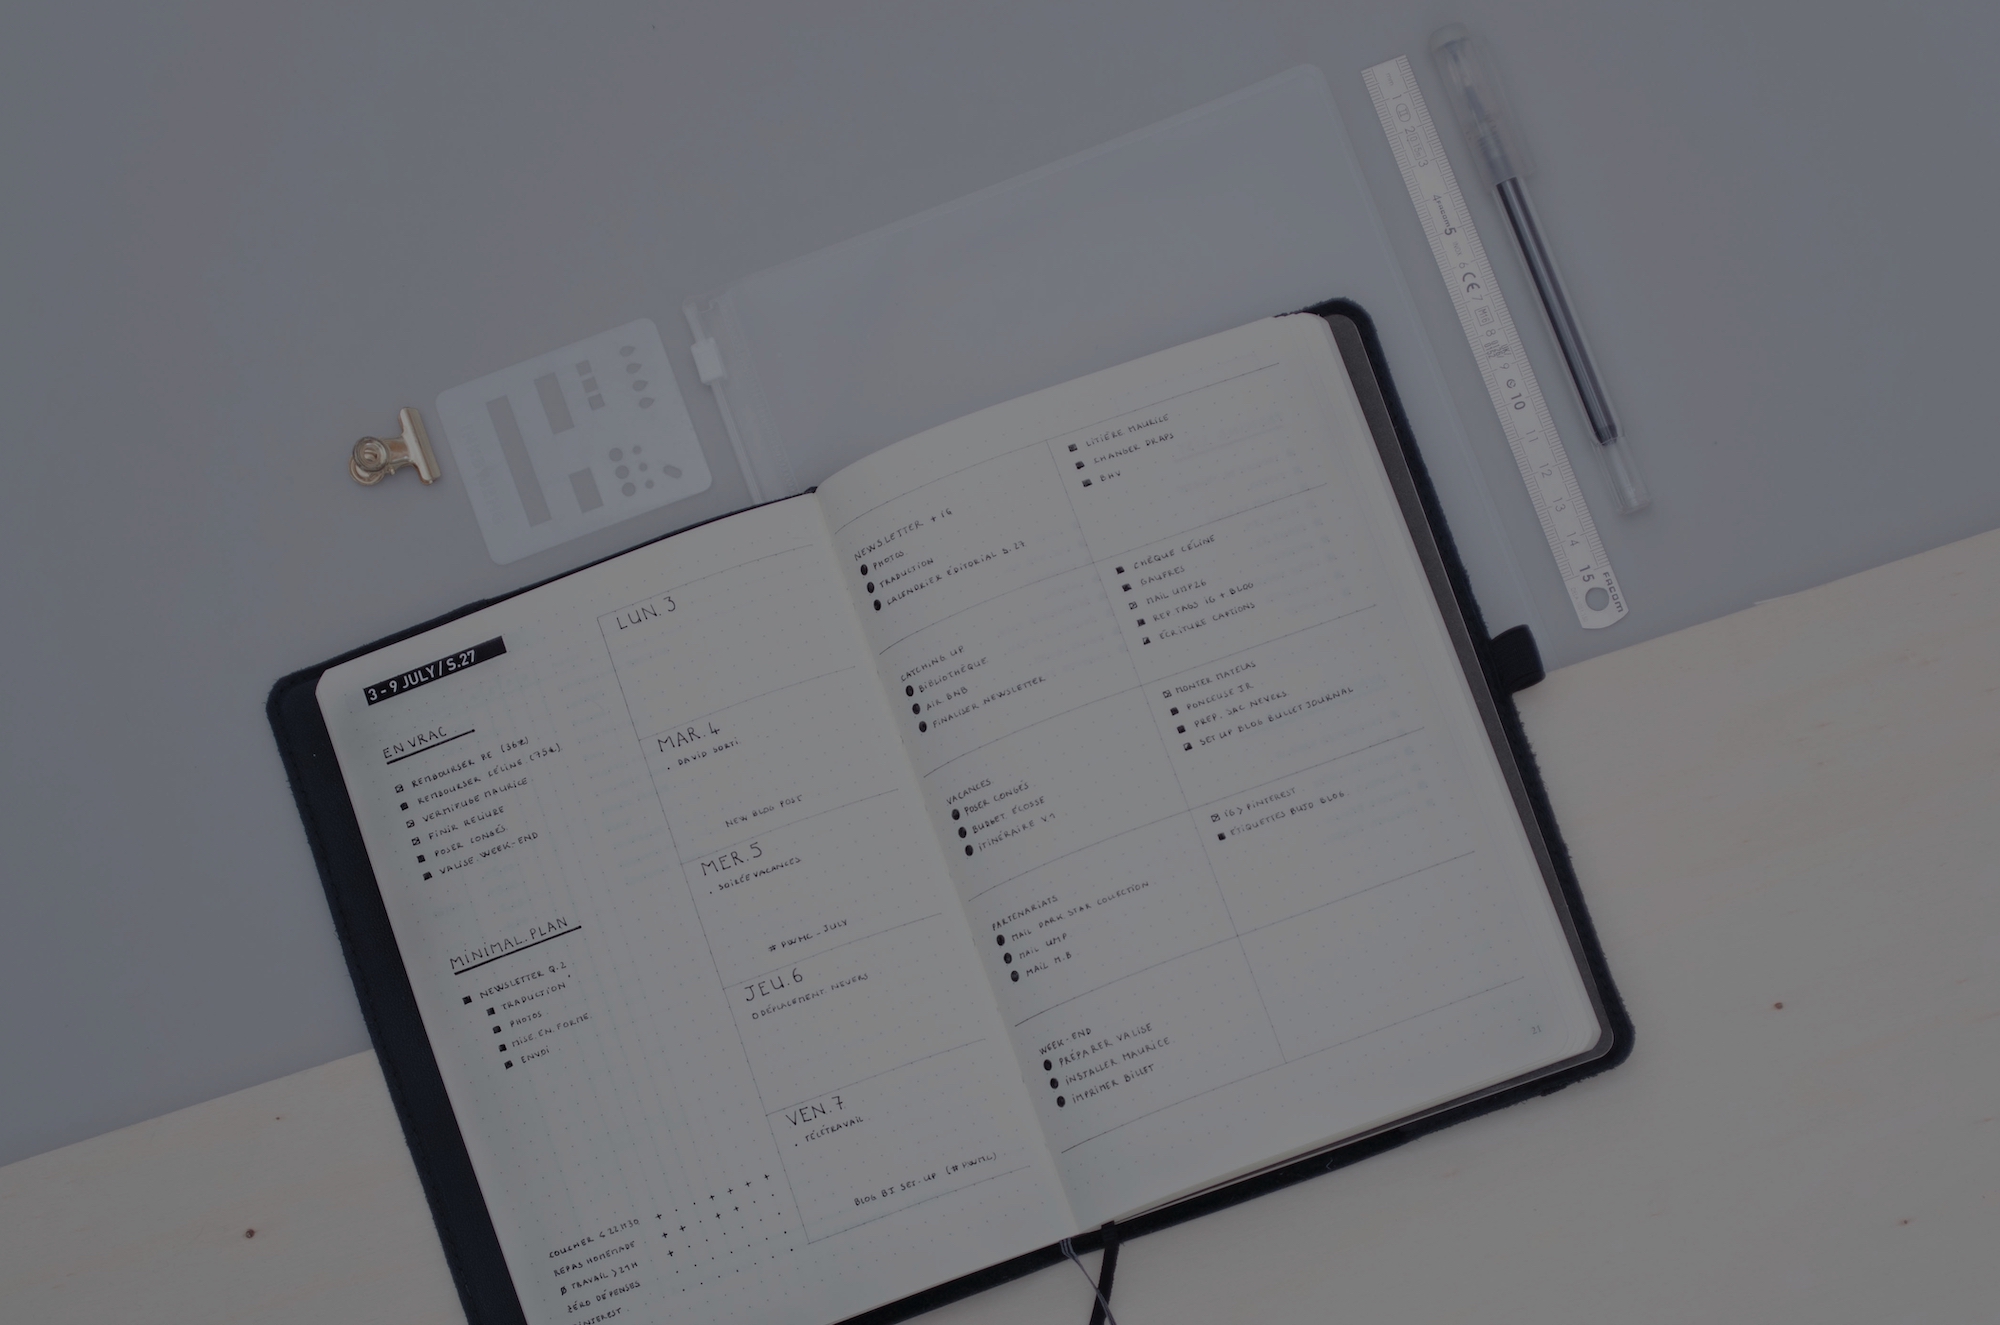 3 - 9 JULY / S.27
EN VRAC
REMBOURSER PE (36€)
REMBOURSER CÉLINE (75€)
VERMIFUGE MAURICE
FINIR RELIURE
POSER CONGÉS
VALISE WEEK-END
MINIMAL.PLAN
NEWSLETTER Q.2
TRADUCTION
PHOTOS
MISE.EN.FORME
ENVOI
COUCHER < 22H30
REPAS HOMEMADE
Ø TRAVAIL > 21H
ZÉRO DÉPENSES
PINTEREST
LUN.3
MAR.4
• DAVID SORTI
NEW BLOG POST
MER.5
• SOIRÉE VACANCES
#PWMC_JULY
JEU.6
O DÉPLACEMENT NEVERS
VEN.7
• TÉLÉTRAVAIL
BLOG BJ SET-UP (#PWMC)
NEWSLETTER + IG
PHOTOS
TRADUCTION
CALENDRIER ÉDITORIAL S.27
CATCHING UP
BIBLIOTHÈQUE
AIR BNB
FINALISER NEWSLETTER
VACANCES
POSER CONGÉS
BUDGET ÉCOSSE
ITINÉRAIRE V1
PARTENARIATS
MAIL DARK STAR COLLECTION
MAIL UMP
MAIL M.B
WEEK-END
PRÉPARER VALISE
INSTALLER MAURICE
IMPRIMER BILLET
LITIÈRE MAURICE
CHANGER DRAPS
BHV
CHÈQUE CÉLINE
GAUFRES
MAIL UMP26
REP TAGS IG + BLOG
ÉCRITURE CAPTIONS
MONTER MATELAS
PONCEUSE JR
PREP. SAC NEVERS
SET UP BLOG BULLET JOURNAL
IG > PINTEREST
ÉTIQUETTES BUJO BLOG
23
1 2 3
4 5 6 CE 7 8 9 10 11 12 13 14 15
FACOM